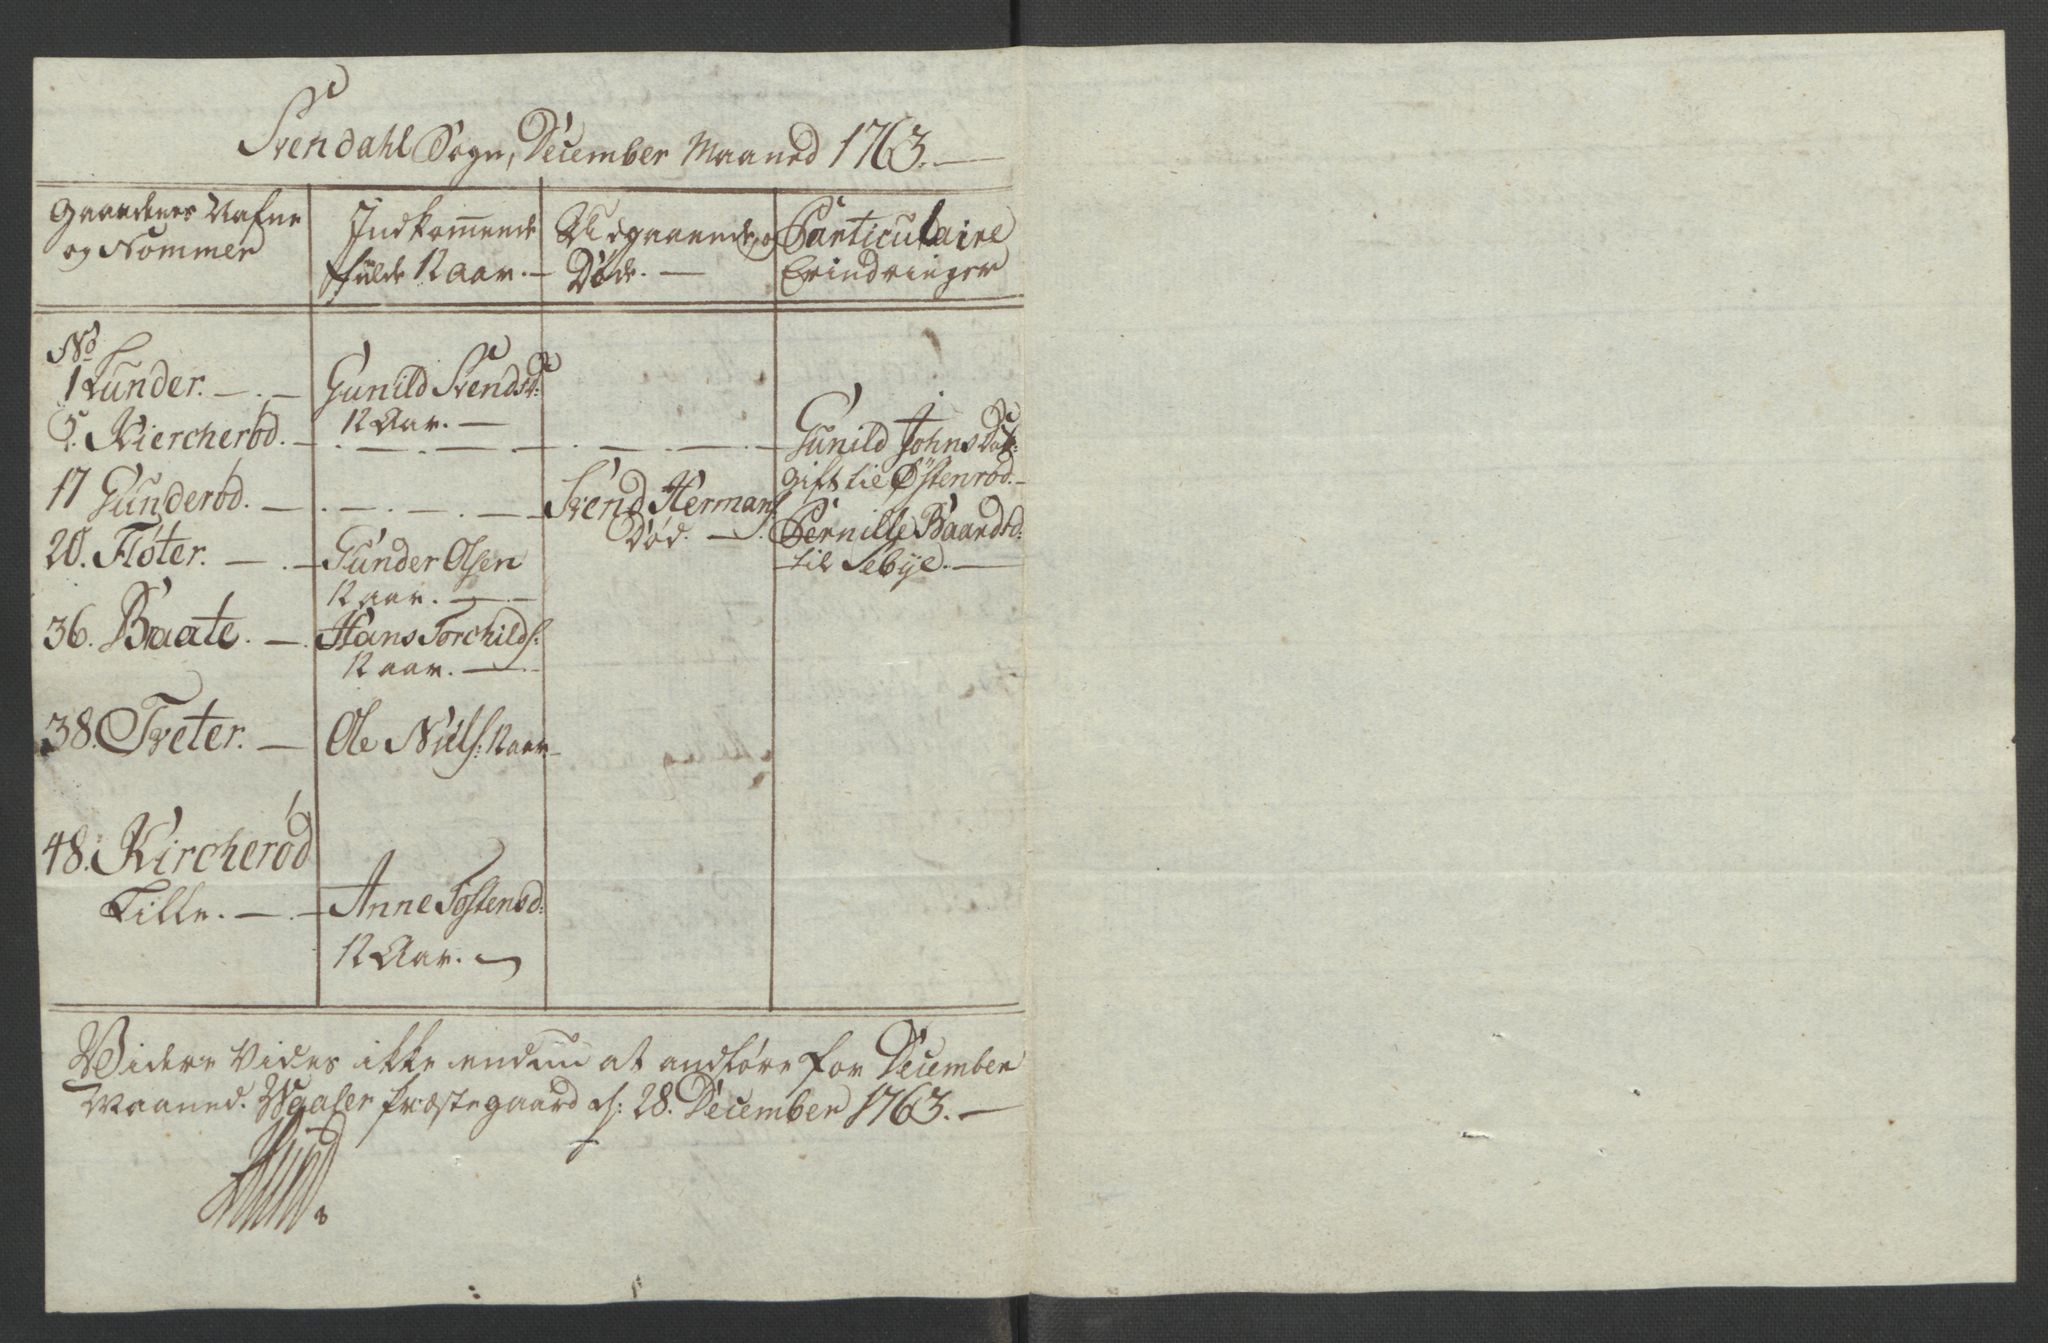 Svendahl Sogn, December Maaned 1763.
Gaardenes Nafne
og Nommer
Indkomende
fulde 12 aar.
Udgaaende, og
Døde.
Particulaire
Erindringer
No
1 Lunder.
Gunild Svendsd:
12 Aar.
5. Kiercherød.
Gunild Johns Dat:
gift til Østenrød.
17 Gunderød.
Svend Hermans
Død.
Pernille Baardsd:
til Sebye.
20. Fløter.
Gunder Olsen
12 aar.
36. Braate.
Hans Torchilds:
12 aar.
38. Tveter.
Ole Niels: 12 aar
48. Kircherød
Lille.
Anne Tostensd:
12 Aar.
Widere Vides ikke endnu at andføre for December
Maaned. Waaler Præstegaard d: 28. December 1763.